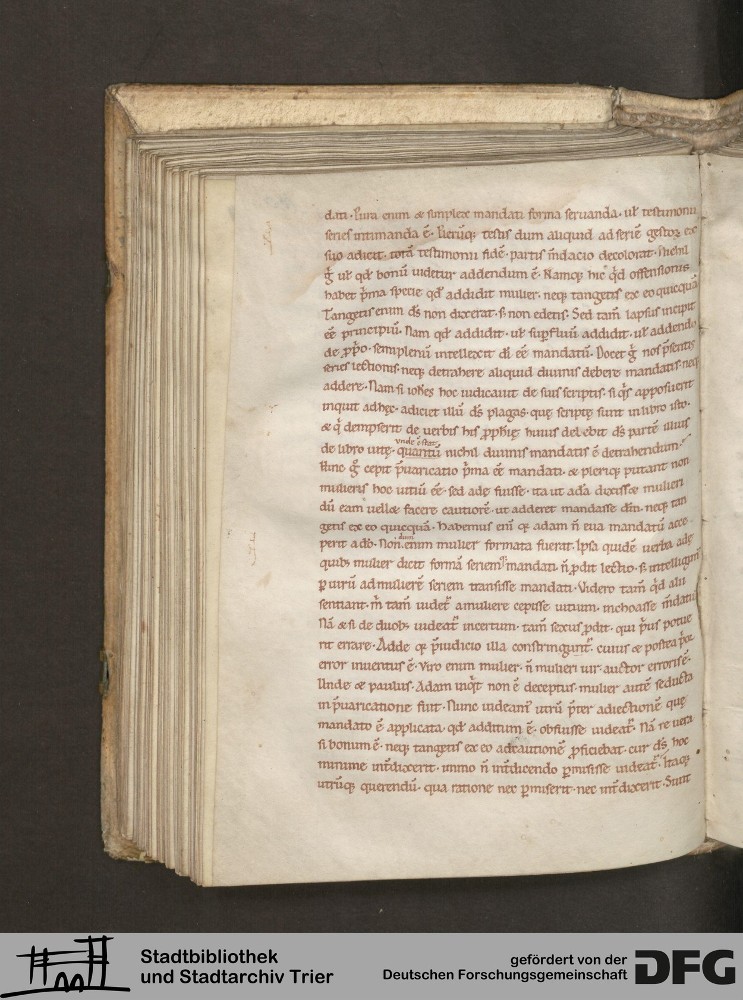 dati. Pura enim & simplex mandati forma seruanda. uł testimonii
series intimanda ē. Pleruq; testis dum aliquid ad seriē gestoꝝ ex
suo adicit. totā testimonii fidē. partis m̄dacio decolorat. Nichil
g̊ uł qđ bonū uidetur addendum ē. Namq; hic qđ offensionis
habet p̄ma specie qđ addidit mulier. neq; tangetis ex eo quicquā
Tangetis enim ds̄ non dixerat. s; non edetis. Sed tam̄ lapsus incipit
ēē principiū. Nam qđ addidit. uł supfluū addidit. uł addendo
de ꝓpo. semiplenū intellexit dī ēē mandatū. Docet g̊ nos p̄sentis
series lectionis. neq; detrahere aliquid diuinis debere mandatis. neq;
addere. Nam si ioħes hoc iudicauit de suis scriptis. si qs apposuerit
inquit adhęc. adiciet illū ds̄ plagas. quę scriptę sunt in libro isto.
& q dempserit de uerbis his ꝓphię huius delebit ds̄ partē illius
de libro uitę. quantū nichil diuinis mandatis ē detrahendum.
vnde ē stat
Hinc g̊ cepit p̄uaricatio p̄ma ēē mandati. & pleriq; putant non
mulieris hoc uitiū ēē. sed adę fuisse. ita ut adā dixisse mulieri
dū eam uellet facere cautiorē. ut adderet mandasse dm̄. neq; tan
getis ex eo quicquā. Habemus enī q adam n̄ eua mandatū acce
perit a dō. Non enim mulier formata fuerat. Ipsa quidē uerba adę
dum
quib; mulier dicit formā seriem mandati n̄ ꝓdit lectio. s; intelligim̄
ꝑ uirū ad mulierē seriem transisse mandati. Videro tam̄ qđ alii
sentiant. m̄ tam̄ uidet a muliere cepisse uitium. inchoasse m̄datū
Nā & si de duob; uideat incertum. tam̄ sexus ꝓdit. qui p̄us potue
rit errare. Adde q p̄iudicio illa constringunt̃. cuius & postea p̄or
error inuentus ē. Viro enim mulier. n̄ mulieri uir. auctor erroris ē.
Unde & paulus. Adam inqt non ē deceptus. mulier autē seducta
in p̄uaricatione fuit. Nunc uideam utrū p̄ter adiectionē quę
mandato ē applicata. qđ additum ē. obfuisse uideat̃. Nā re uera
si bonum ē. neq; tangetis ex eo ad cautionē ꝓficiebat. cur ds̄ hoc
minime int̄dixerit. immo n̄ int̄dicendo ꝑmisisse uideat̃. Itaq;
utrūq; querendū. qua ratione nec ꝑmiserit. nec int̄dixerit. Sunt
Stadtbibliothek
und Stadtarchiv Trier
gefördert von der
Deutschen Forschungsgemeinschaft
DFG